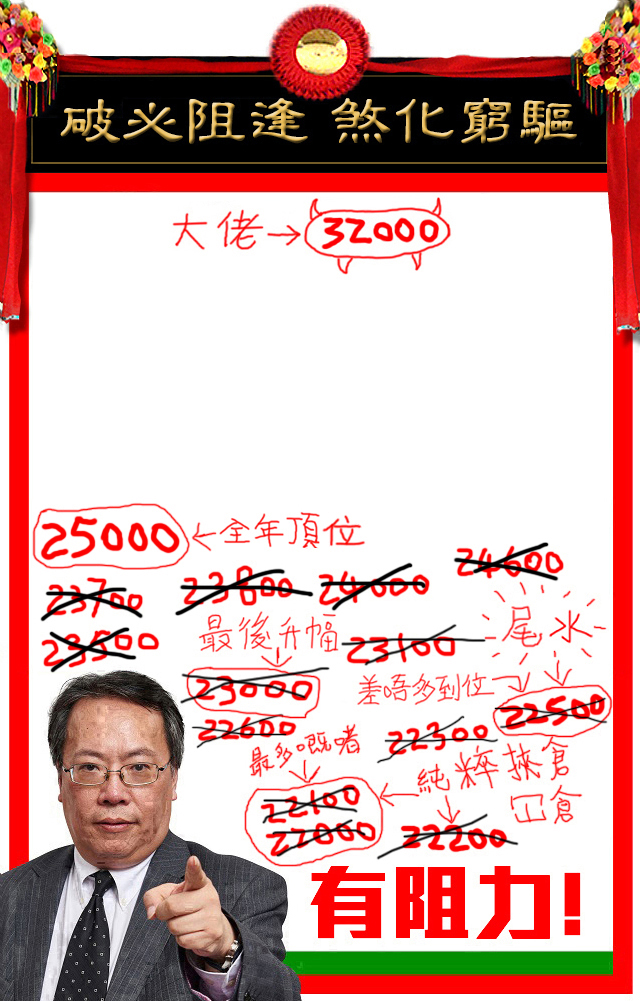 破必阻逢 煞化窮驅
大佬→32000
25000←全年頂位
24600
23700 23800 24000
23500 最後升幅 23100 尾水
23000 差唔多到位 22500
22600 22300
最多嘅啫 純粹挾倉
22100 冚倉
22000 22200
有阻力!